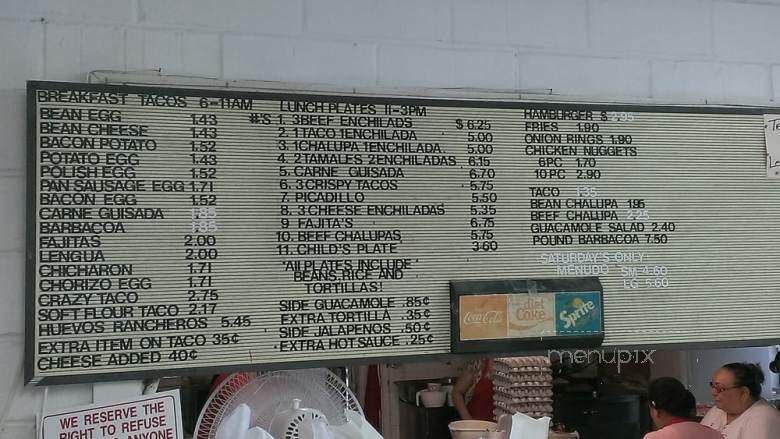 BREAKFAST TACOS 6-11AM
BEAN EGG 1.43
BEAN CHEESE 1.43
BACON POTATO 1.52
POTATO EGG 1.43
POLISH EGG 1.52
PAN SAUSAGE EGG 1.71
BACON EGG 1.52
CARNE GUISADA 1.85
BARBACOA 1.85
FAJITAS 2.00
LENGUA 2.00
CHICHARON 1.71
CHORIZO EGG 1.71
CRAZY TACO 2.75
SOFT FLOUR TACO 2.17
HUEVOS RANCHEROS 5.45
EXTRA ITEM ON TACO 35¢
CHEESE ADDED 40¢
LUNCH PLATES 11-3PM
#'S 1. 3 BEEF ENCHILADS $ 6.25
2. 1 TACO 1 ENCHILADA 5.00
3. 1 CHALUPA 1 ENCHILADA. 5.00
4. 2 TAMALES 2 ENCHILADAS 6.15
5. CARNE GUISADA 6.70
6. 3 CRISPY TACOS 5.75
7. PICADILLO 5.50
8. 3 CHEESE ENCHILADAS 5.35
9 FAJITA'S 6.75
10. BEEF CHALUPAS 5.75
11. CHILD'S PLATE 3.60
"All PLATES INCLUDE"
BEANS RICE AND
TORTILLAS!
SIDE GUACAMOLE .85¢
EXTRA TORTILLA .35¢
SIDE JALAPENOS .50¢
EXTRA HOT SAUCE .25¢
HAMBURGER $ 2.95
FRIES 1.90
ONION RINGS 1.90
CHICKEN NUGGETS
6 PC 1.70
10 PC 2.90
TACO 1.35
BEAN CHALUPA 1.95
BEEF CHALUPA 2.25
GUACAMOLE SALAD 2.40
POUND BARBACOA 7.50
SATURDAY'S ONLY
MENUDO SM 4.60
LG 5.60
Coca-Cola
diet Coke
Sprite
menupix
WE RESERVE THE
RIGHT TO REFUSE
ANYONE